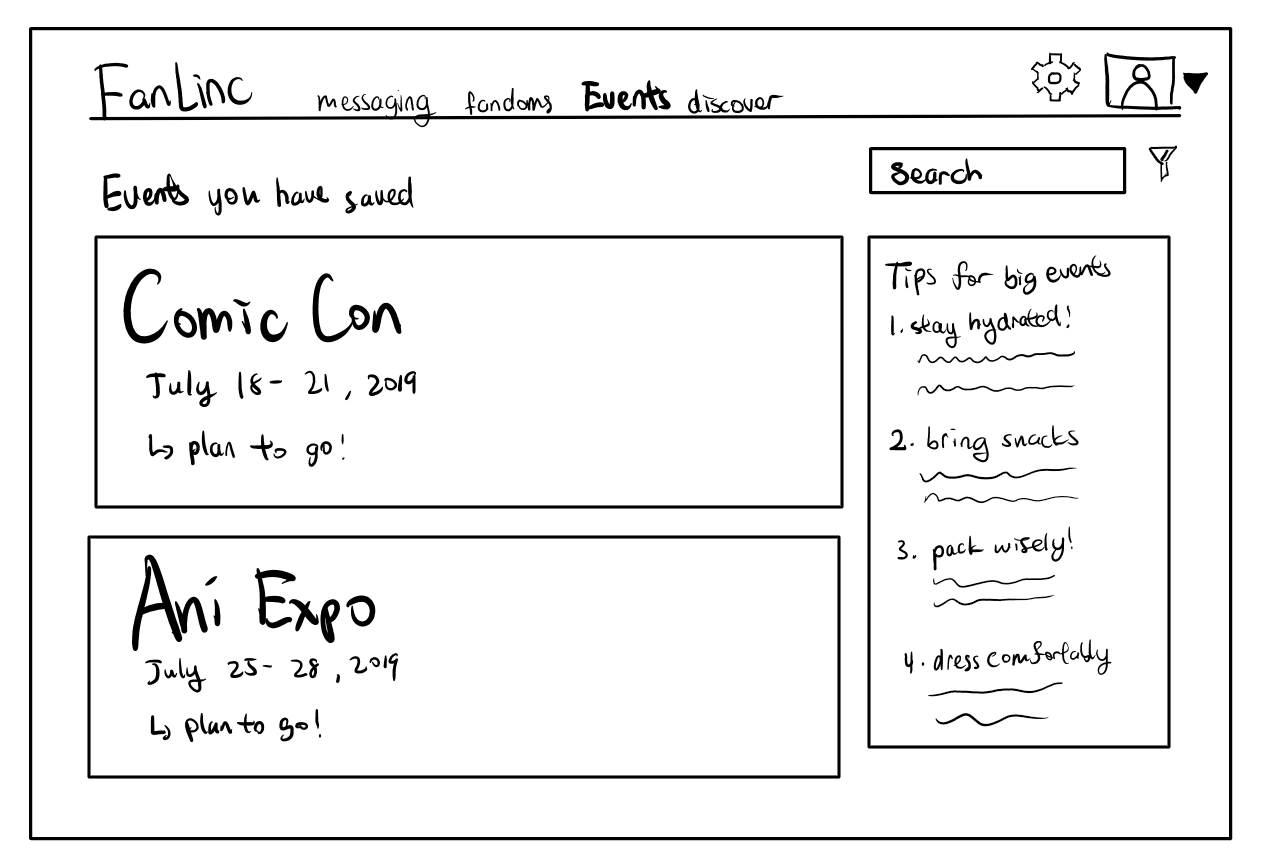 FanLinc messaging fandoms Events discover
Search
Events you have saved
Comic Con
July 18 - 21, 2019
↳ plan to go!
Ani Expo
July 25 - 28, 2019
↳ plan to go!
Tips for big events
1. stay hydrated!
2. bring snacks
3. pack wisely!
4. dress comfortably